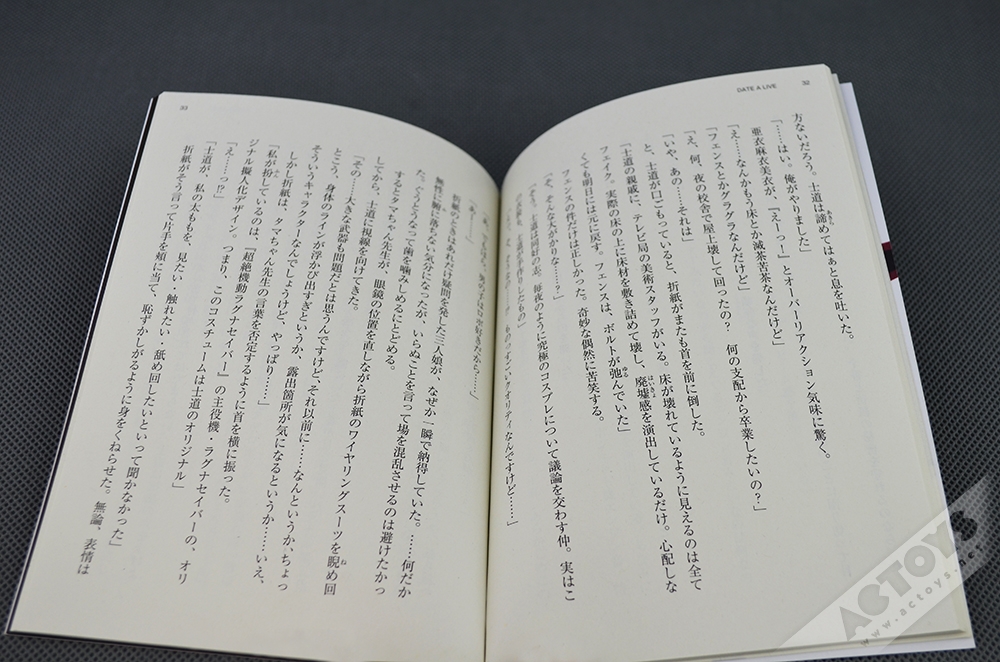 DATE A LIVE
32
方ないだろう。士道は諦めてはぁと息を吐いた。
「……はい。俺がやりました」
亜衣麻衣美衣が、『えーっ!』とオーバーリアクション気味に驚く。
「え……なんかもう床とか滅茶苦茶なんだけど」
「フェンスとかグラグラなんだけど」
「え、何、夜の校舎で屋上壊して回ったの? 何の支配から卒業したいの?」
「いや、あの……それは」
と、士道が口ごもっていると、折紙がまたも首を前に倒した。
「士道の親戚に、テレビ局の美術スタッフがいる。床が壊れているように見えるのは全て
フェイク。実際の床の上に床材を敷き詰めて壊し、廃墟感を演出しているだけ。心配しな
くても明日には元に戻す。フェンスは、ボルトが弛んでいた」
フェンスの件だけは正しかった。奇妙な偶然に苦笑する。
「そ、そんな大がかりな……!?」
「そう。士道は同好の志。毎夜のように究極のコスプレについて議論を交わす仲。実はこ
士道が手作りしたもの」
ものっすごいクオリティなんですけど……」
33
男の子はロボ好きだから……」
「あー……」
折紙のときはあれだけ疑問を発した三人娘が、なぜか一瞬で納得していた。……何だか
無性に腑に落ちない気分になったが、いらぬことを言って場を混乱させるのは避けたかっ
た。ぐうとうなって歯を噛みしめるにとどめる。
するとタマちゃん先生が、眼鏡の位置を直しながら折紙のワイヤリングスーツを睨め回
してから、士道に視線を向けてきた。
「その……大きな武器も問題だとは思うんですけど、それ以前に……なんというか、ちょっ
とこう、身体のラインが浮かび出すぎというか、露出箇所が気になるというか……いえ、
そういうキャラクターなんでしょうけど、やっぱり……」
しかし折紙は、タマちゃん先生の言葉を否定するように首を横に振った。
「私が扮しているのは、『超絶機動ラグナセイバー』の主役機・ラグナセイバーの、オリ
ジナル擬人化デザイン。つまり、このコスチュームは士道のオリジナル」
「え……っ!?」
「士道が、私の太ももを、見たい・触れたい・舐め回したいといって聞かなかった」
折紙がそう言って片手を頬に当て、恥ずかしがるように身をくねらせた。無論、表情は
ACTOYS
www.actoys.